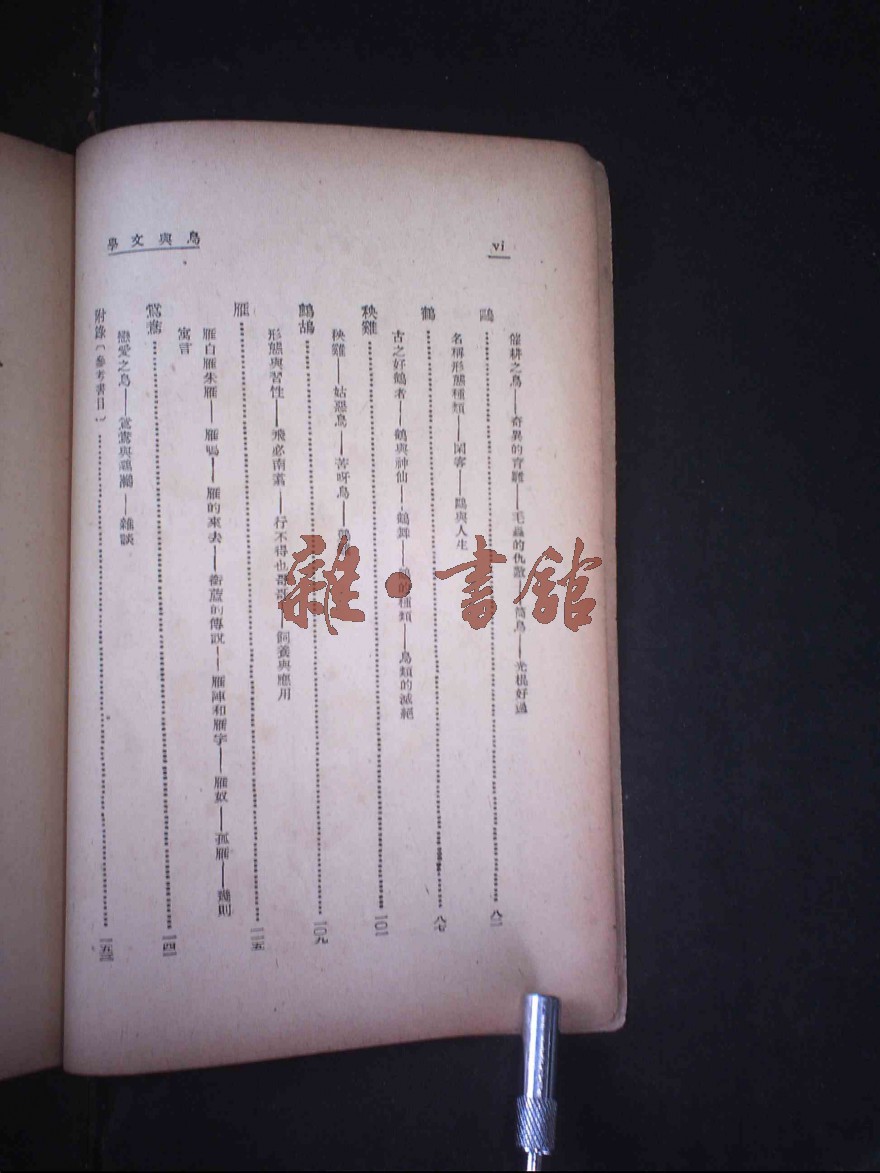 鳥與文學
vi
催耕之鳥——奇異的育雛——毛蟲的仇敵——筒鳥——光棍好過
鷗……八二
名稱形態種類——閑客——鷗與人生
鶴……八七
古之好鶴者——鶴與神仙——鶴舞——鶴的種類——鳥類的滅絕
秧雞……一〇一
秧雞——姑惡鳥——苦呀鳥
鷓鴣……一〇九
形態與習性——飛必南翥——行不得也哥哥——飼養與應用
雁……一一五
雁白雁朱雁——雁鳴——雁的來去——銜蘆的傳說——雁陣和雁字——雁奴——孤雁——幾則
寓言
鴛鴦……一四一
戀愛之鳥——鴛鴦與鸂鶒——雜談
附錄（參考書目）……一五三
雜·書館